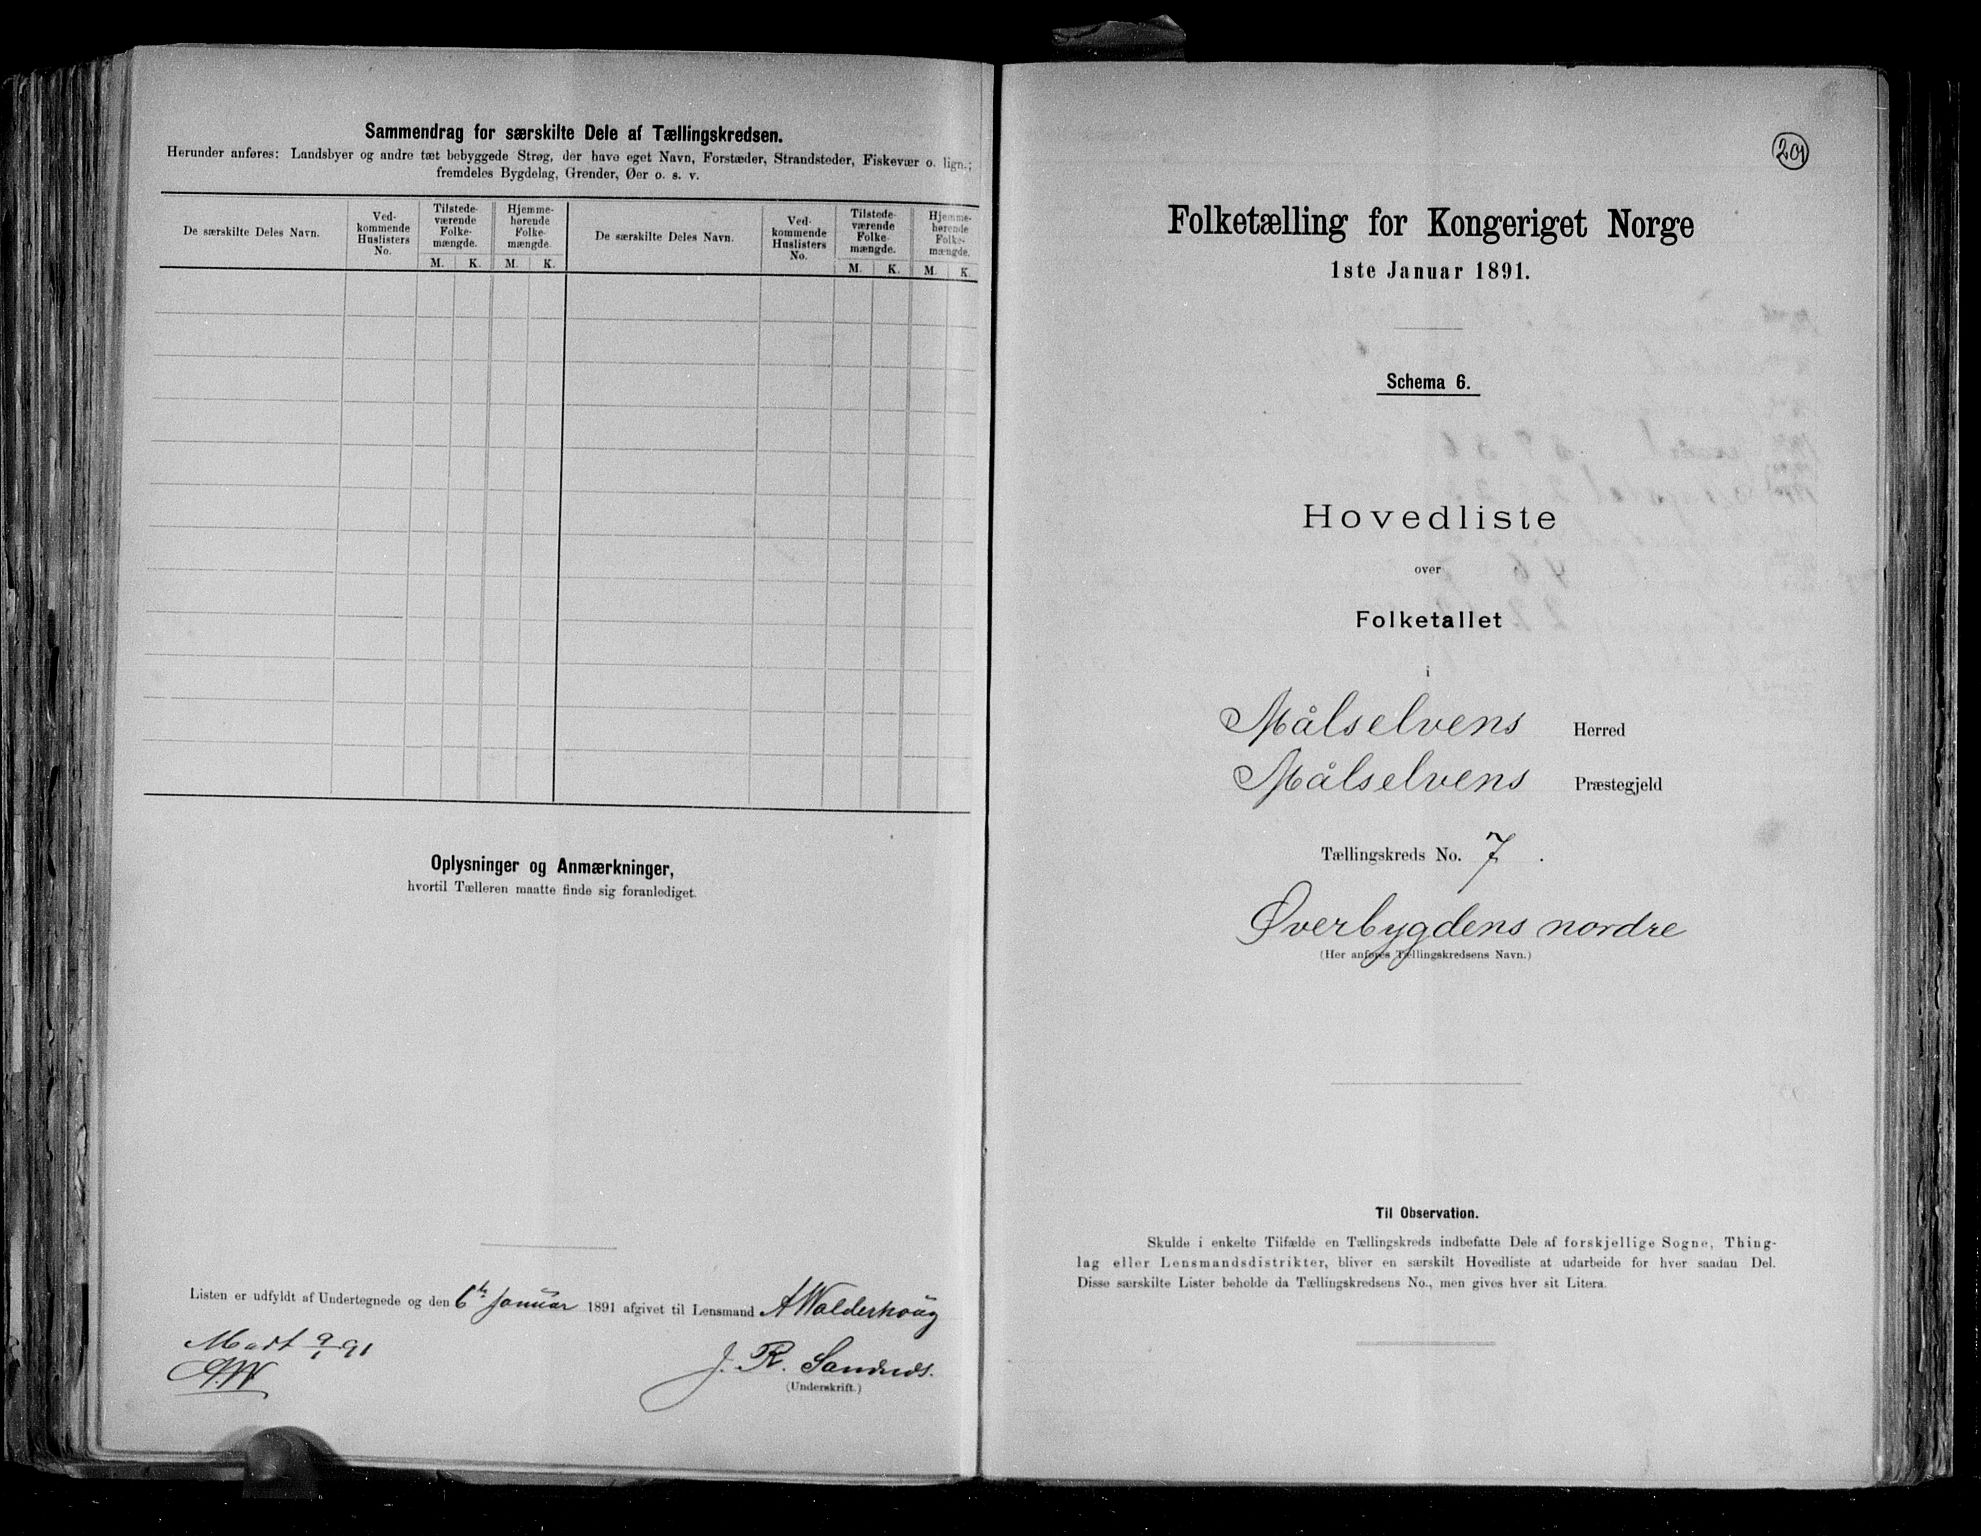 Sammendrag for særskilte Dele af Tællingskredsen.
Herunder anføres: Landsbyer og andre tæt bebyggede Strøg, der have eget Navn, Forstæder, Strandsteder, Fiskevær o. lign.;
fremdeles Bygdelag, Grender, Øer o. s. v.
De særskilte Deles Navn.
Ved-
kommende
Huslisters
No.
Tilstede-
værende
Folke-
mængde.
M. K.
Hjemme-
hørende
Folke-
mængde.
M. K.
De særskilte Deles Navn.
Ved-
kommende
Huslisters
No.
Tilstede-
værende
Folke-
mængde.
M. K.
Hjemme-
hørende
Folke-
mængde.
M. K.
Oplysninger og Anmærkninger,
hvortil Tælleren maatte finde sig foranlediget.
Listen er udfyldt af Undertegnede og den 6te Januar 1891 afgivet til Lensmand A Walderhoug
Modt 9/1 91
AW
J. R. Sandnes.
(Underskrift.)
201
Folketælling for Kongeriget Norge
1ste Januar 1891.
Schema 6.
Hovedliste
over
Folketallet
i
Målselvens Herred
Målselvens Præstegjeld
Tællingskreds No. 7.
Øverbygdens nordre
(Her anføres Tællingskredsens Navn.)
Til Observation.
Skulde i enkelte Tilfælde en Tællingskreds indbefatte Dele af forskjellige Sogne, Thing-
lag eller Lensmandsdistrikter, bliver en særskilt Hovedliste at udarbeide for hver saadan Del.
Disse særskilte Lister beholde da Tællingskredsens No., men gives hver sit Litera.